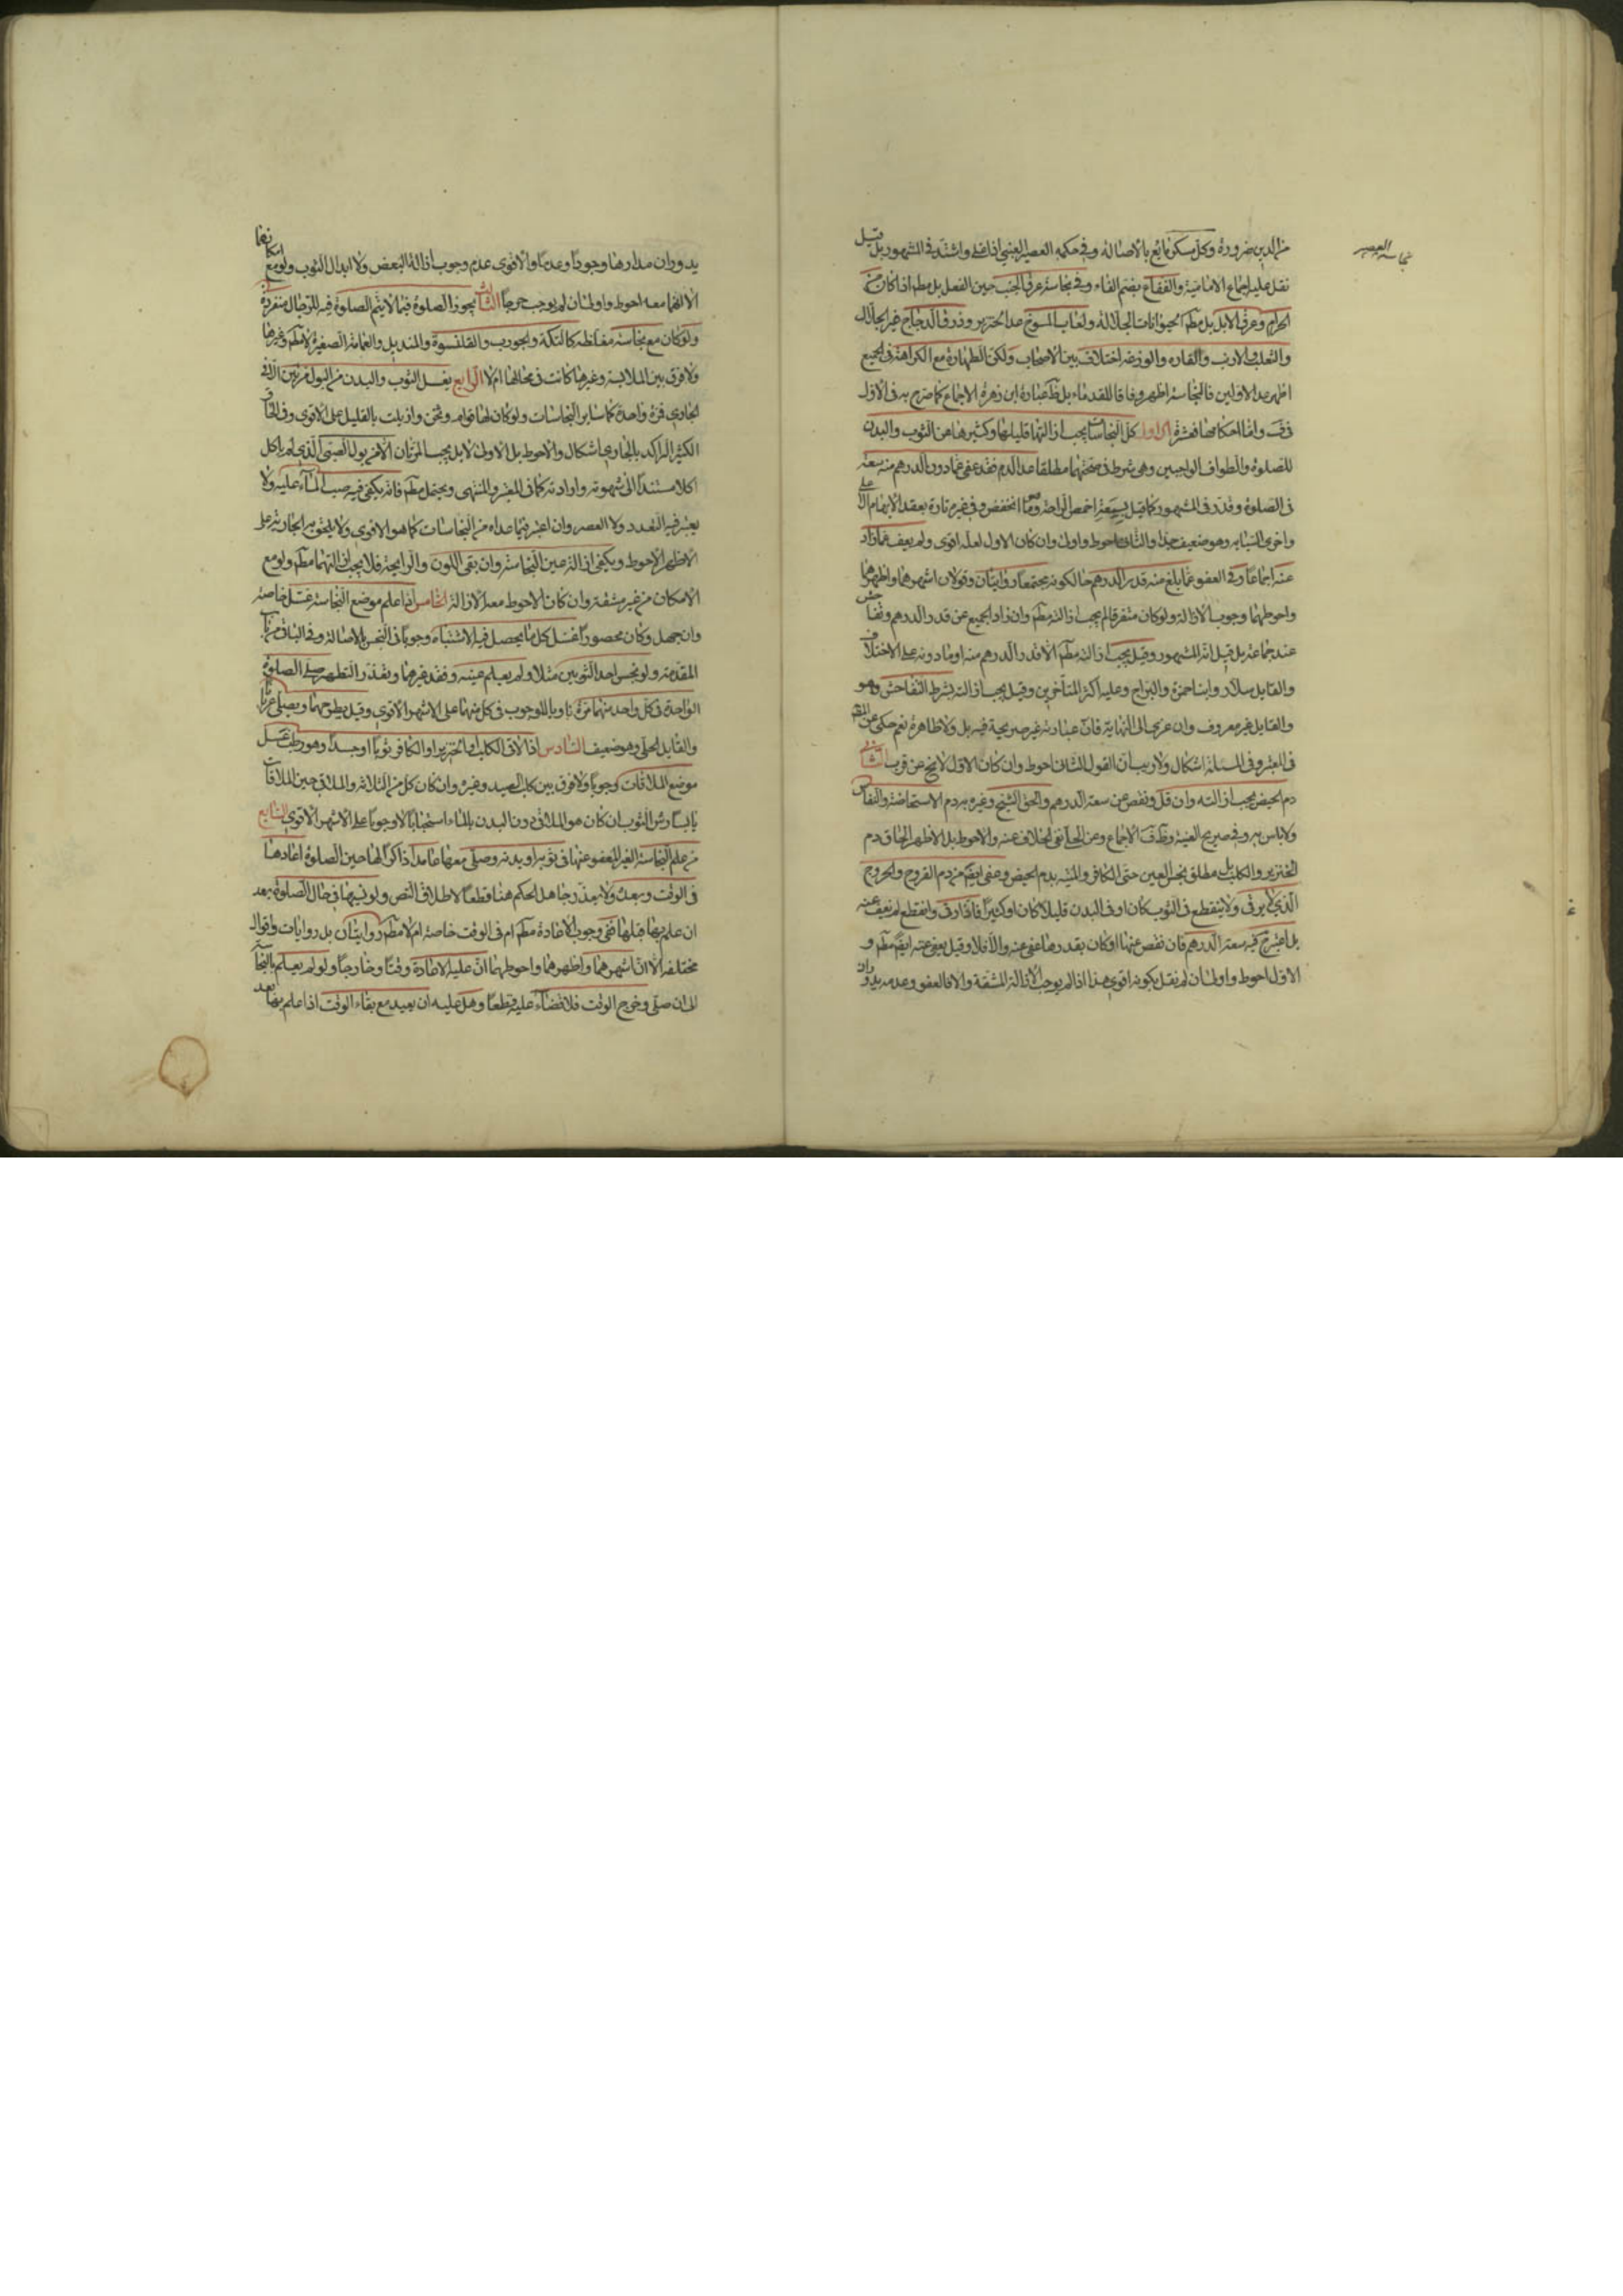 نجاسة العصير
من الدين ضرورة وكل مسكر مايع بالاصالة وفي حكمه العصير العنبي اذا غلى واشتد في المشهور بل قيل
نقل عليه اجماع الامامية والفقاع بضم الفاء وفي نجاسة عرق الجنب حين الفعل بل مطم اذا كان من
الحرام وعرق الابل بل مطم الحيوانات الجلالة ولعاب المسوخ عدا الخنزير وذرق الدجاج غير الجلال
والثعلب والارنب والفاره والوزغه اختلاف بين الاصحاب ولكن الطهارة مع الكراهة في الجميع
اظهر عدا الاولين فالنجاسة اظهر وفاقا للقدماء بل ظ عبارة ابن زهرة الاجماع كما صرح به في الاول
في ف واما احكامها فعشرة الاول كل النجاسات يجب ازالتها قليلها وكثيرها عن الثوب والبدن
للصلوة والطواف الواجبين وهي شرط في صحتهما مطلقا عدا الدم فقد عفى عما دون الدرهم منه سعة
في الصلوة وقدر في المشهور كما قيل بسعة اخمص الراحة وما انخفض وفي غيره تارة بعقد الابهام الاعلى
واخرى السبابه وهو ضعيف جدا والثاني احوط واولى وان كان الاول لعله اقوى ولم يعف عما زاد
عنه اجماعا وفي العفو عما بلغ منه قدر الدرهم حالكونه مجتمعا روايتان وقولان اشهرهما واظهرهما
واحوطهما وجوب الازالة ولو كان متفرقا لم يجب ازالته مطم وان زاد الجميع عن قدر الدرهم وتفاحش
عند جماعة بل قيل انه المشهور وقيل يجب ازالته مطم الا قدر الدرهم منه او ما دونه على الاختلاف
والقايل سلار وابنا حمزة والبراج وعليه اكثر المتاخرين وقيل يجب ازالته بشرط التفاحش وهو
والقايل غير معروف وان عزي الى النهاية فان عبارته غير صريحة فيه بل ولا ظاهرة نعم حكي عن المصنف
في المعتبر وفي المسئلة اشكال ولا ريب ان القول الثاني احوط وان كان الاول لا يخ عن قرب الثاني
دم الحيض يجب ازالته وان قل ونقص عن سعة الدرهم والحق الشيخ وغيره به دم الاستحاضة والنفاس
ولا باس به وفي صريح الغنية وظ ف الاجماع وعن الحلي نفي الخلاف عنه والاحوط بل الاظهر الحاق دم
الخنزير والكلب بل مطلق نجس العين حتى الكافر والميتة بدم الحيض وعفي ايضا من دم القروح والجروح
الذي لا يرقى ولا ينقطع في الثوب كان او في البدن قليلا كان او كثيرا فاذا رقى وانقطع لم يعف عنه
بل اعتبر ح فيه سعة الدرهم فان نقص عنها او كان بقدرها عفي عنه والا فلا وقيل يعفى عنه ايضا مطم و
الاول احوط واولى ان لم نقل بكونه اقوى هذا اذا لم يوجب الازالة المشقة والا فالعفو وعدمه يدوران
يدوران مدارها وجودا وعدما والاقوى عدم وجوب ازالة البعض ولا ابدال الثوب ولو مع امكانهما
الا انهما معه احوط واولى ان لم يوجب حرجا الثالث يجوز الصلوة فيما لا يتم الصلوة فيه للرجال منفردة
ولو كان مع نجاسته مغلظه كالتكة والجورب والقلنسوة والمنديل والعمامة الصغيرة الا مطم وغيرها
ولا فرق بين الملابسة وغيرها كانت في محالها ام لا الرابع يغسل الثوب والبدن من البول مرتين الا في
الجاري فمرة واحدة كساير النجاسات ولو كان لها قوام وثخن وازيلت بالقليل على الاقوى وفي الحاق
الكثير الراكد بالجاري اشكال والاحوط بل الاولى لا بل يجب المرتان الا من بول الصبي الذي لم ياكل
اكلا مستندا الى شهوته وارادته كما في المعتبر والمنتهى ويحتمل مطم فانه يكفي فيه صب الماء عليه ولا
يعتبر فيه التعدد ولا العصر وان اعتبر فيما عداه من النجاسات كما هو الاقوى ولا يلحق به الجارية على
الاظهر الاحوط ويكفي ازالة عين النجاسة وان بقي اللون والرايحة فلا يجب ازالتهما مطم ولو مع
الامكان من غير مشقة وان كان الاحوط معه الازالة الخامس اذا علم موضع النجاسة غسل خاصة
وان جهل وكان محصورا غسل كل ما يحصل فيه الاشتباه وجوبا في النجس بالاصالة وفي الباقي من باب
المقدمة ولو نجس احد الثوبين مثلا ولم يعلم عينه وفقد غيرهما وتعذر التطهير صلى الصلوة
الواحدة في كل واحد منهما مرة ناويا للوجوب في كل منهما على الاشهر الاقوى وقيل يطرحهما ويصلي عريانا
والقايل الحلي وهو ضعيف السادس اذا لاقى الكلب او الخنزير او الكافر ثوبا او جسدا وهو رطب غسل
موضع الملاقات وجوبا ولا فرق بين كلب الصيد وغيره وان كان كل من الثلاثة والملاقي حين الملاقات
يابسا رش الثوب ان كان هو الملاقي دون البدن بالماء استحبابا لا وجوبا على الاشهر الاقوى السابع
من علم النجاسة الغير المعفو عنها في ثوبه او بدنه وصلى معها عامدا ذاكرا لها حين الصلوة اعادها
في الوقت وبعده ولا يعذر جاهل الحكم هنا قطعا لاطلاق النص ولو نسيها في حال الصلوة بعد
ان علم بها قبلها ففي وجوب الاعادة مطم ام في الوقت خاصة ام لا مطم روايتان بل روايات واقوال
مختلفة الا ان اشهرهما واظهرهما واحوطهما ان عليه الاعادة وقتا وخارجا ولو لم يعلم بالنجاسة
الى ان صلى وخرج الوقت فلا قضاء عليه قطعا وهل عليه ان يعيد مع بقاء الوقت اذا علم بها بعد